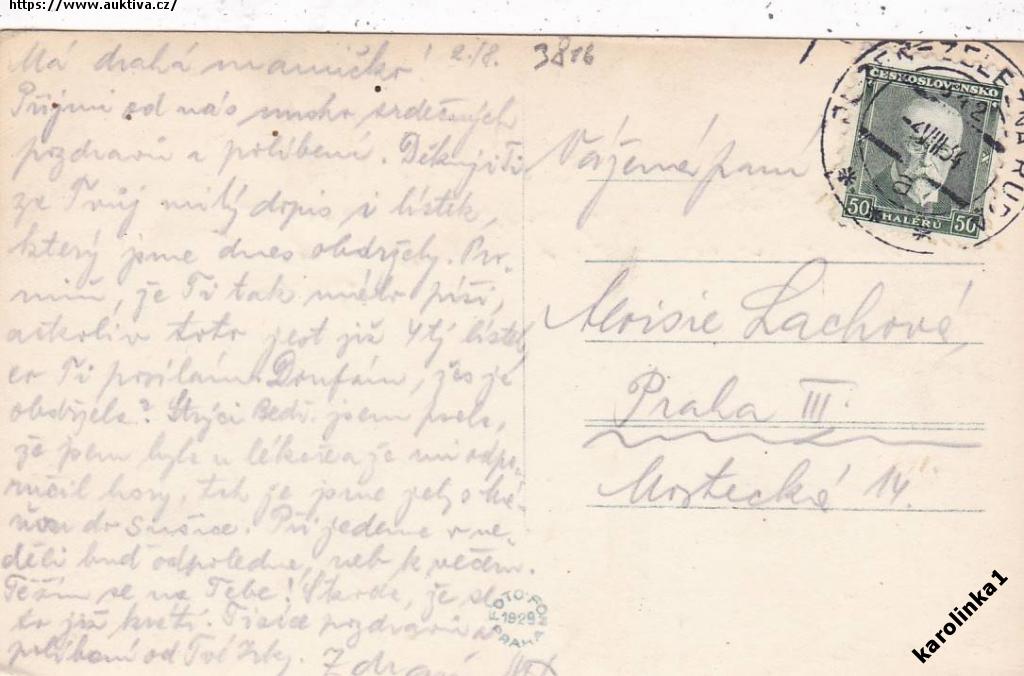 https://www.auktiva.cz/
Má drahá maminko! 2./8. 3816
Přijmi od nás mnoho srdečných
pozdravů a políbení. Děkuji Ti
za Tvůj milý dopis i lístek,
který jsme dnes obdržely. Pro-
miň, že Ti tak málo píši,
ačkoliv toto jest již 4tý lístek,
co Ti posílám. Doufám, žes je
obdržela? Strýci Bedř. jsem psala,
že jsem byla u lékaře a že mi odpo-
ručil hory, tak že jsme jely
do Sušice. Přijedeme v ne-
děli buď odpoledne, neb k večeru.
Těším se na Tebe! Škoda, že se
to již krátí. Tisíce pozdravů a
políbení od Tvé
Zdraví
Vážená paní
Aloisie Lachová,
Praha III.
Mostecká 14.
ČESKOSLOVENSKO
50 HALÉŘŮ 50
ŽELEZNÁ RUDA
FOTO-FON
1929
PRAHA
karolinka1